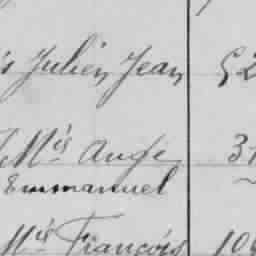 Julien Jean 52
Mis Ange 31
Emmanuel
Mis François 10